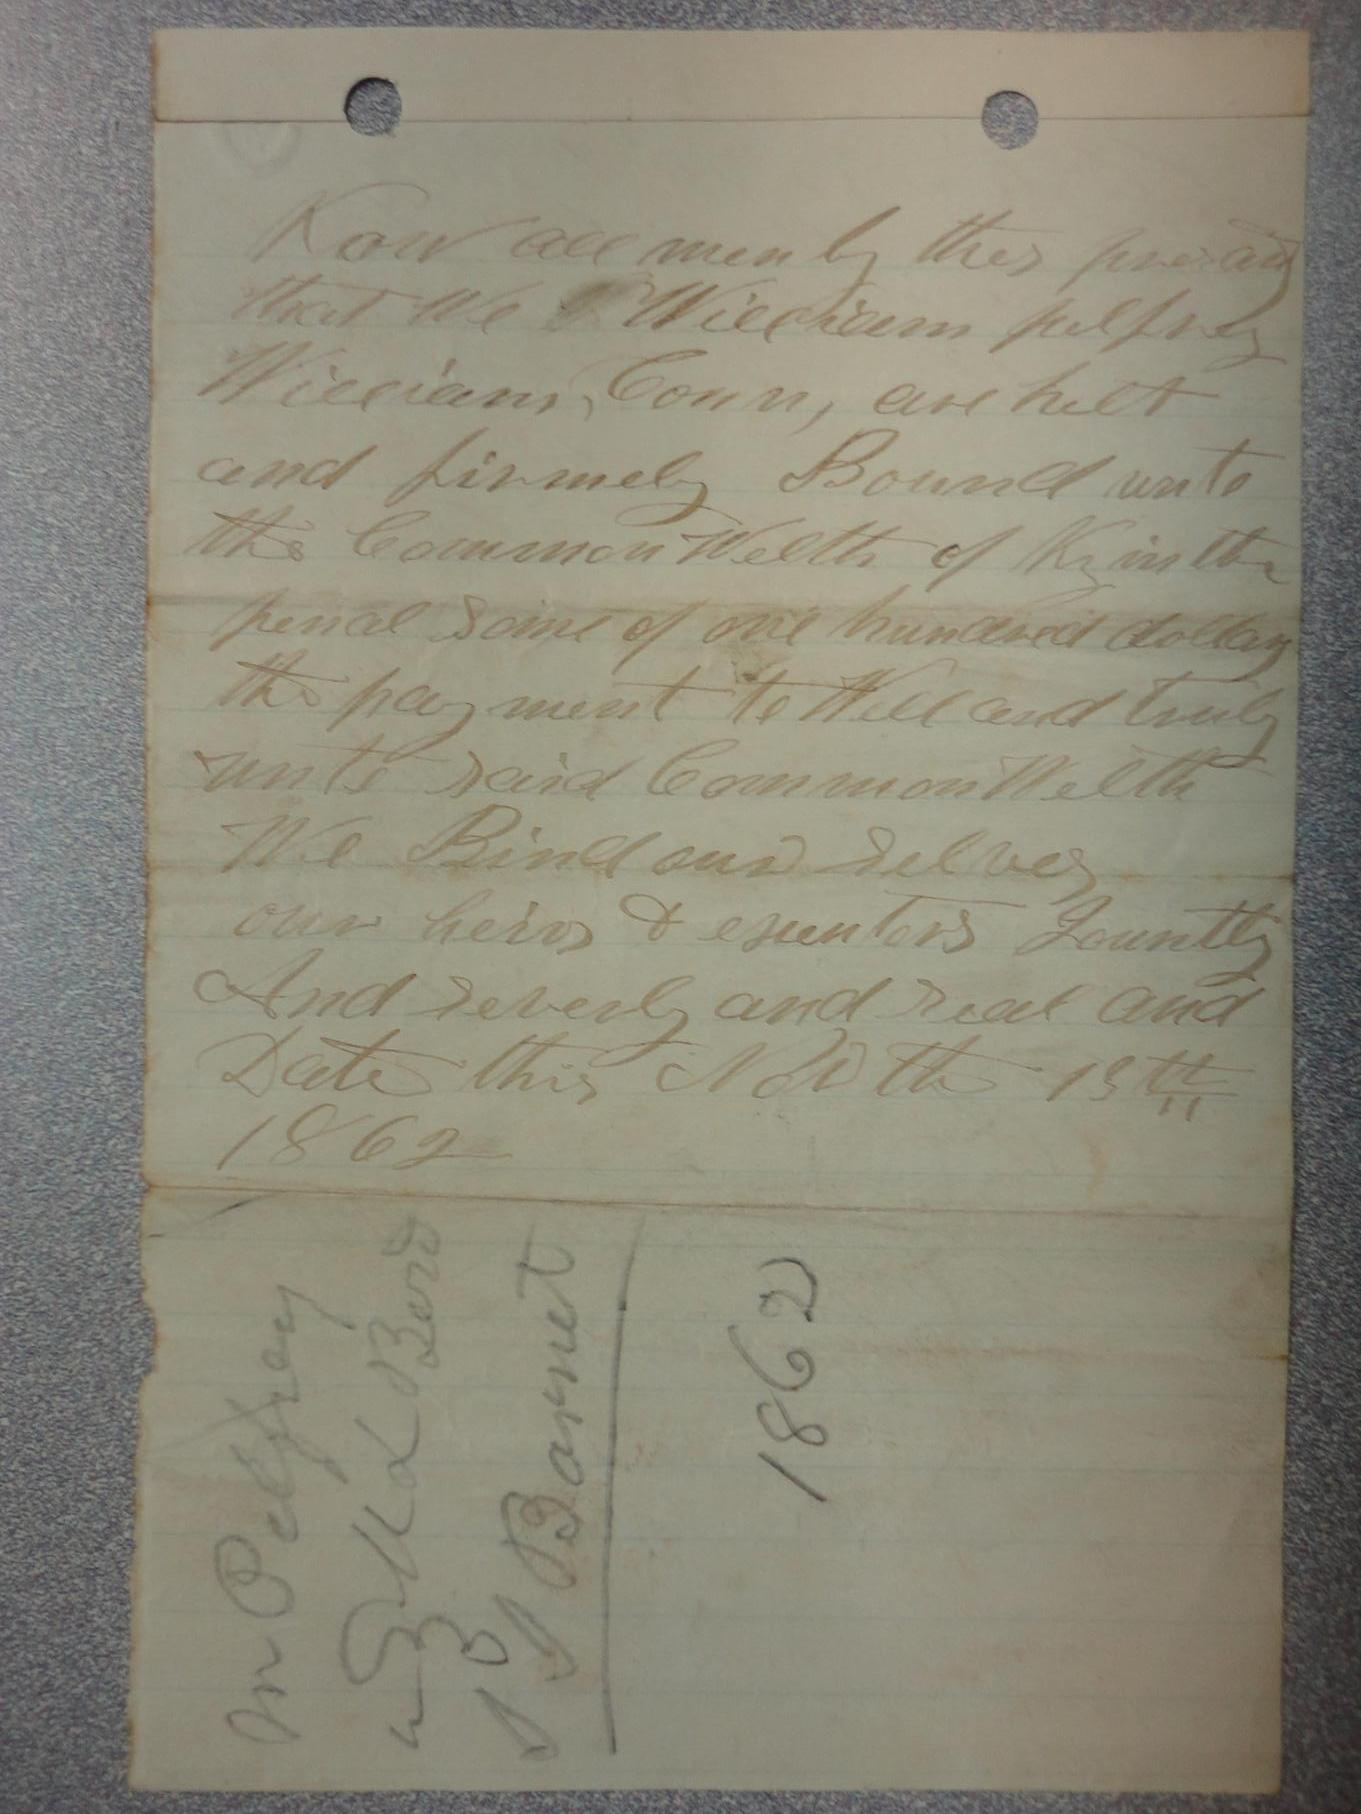 Know all men by thes presants
that We William pelfrey
William, Conn, are helt
and firmely Bound unto
the CommonWelth of Ky in the
penal some of one hundred dollars
the payment to Well and truly
unto said CommonWelth
We Bind our selves
our heirs & exeuntors Jountly
And severly and seal and
Date this Nov the 13th
1862
m Pelfrey
M L Bord
J B Barnet
1862